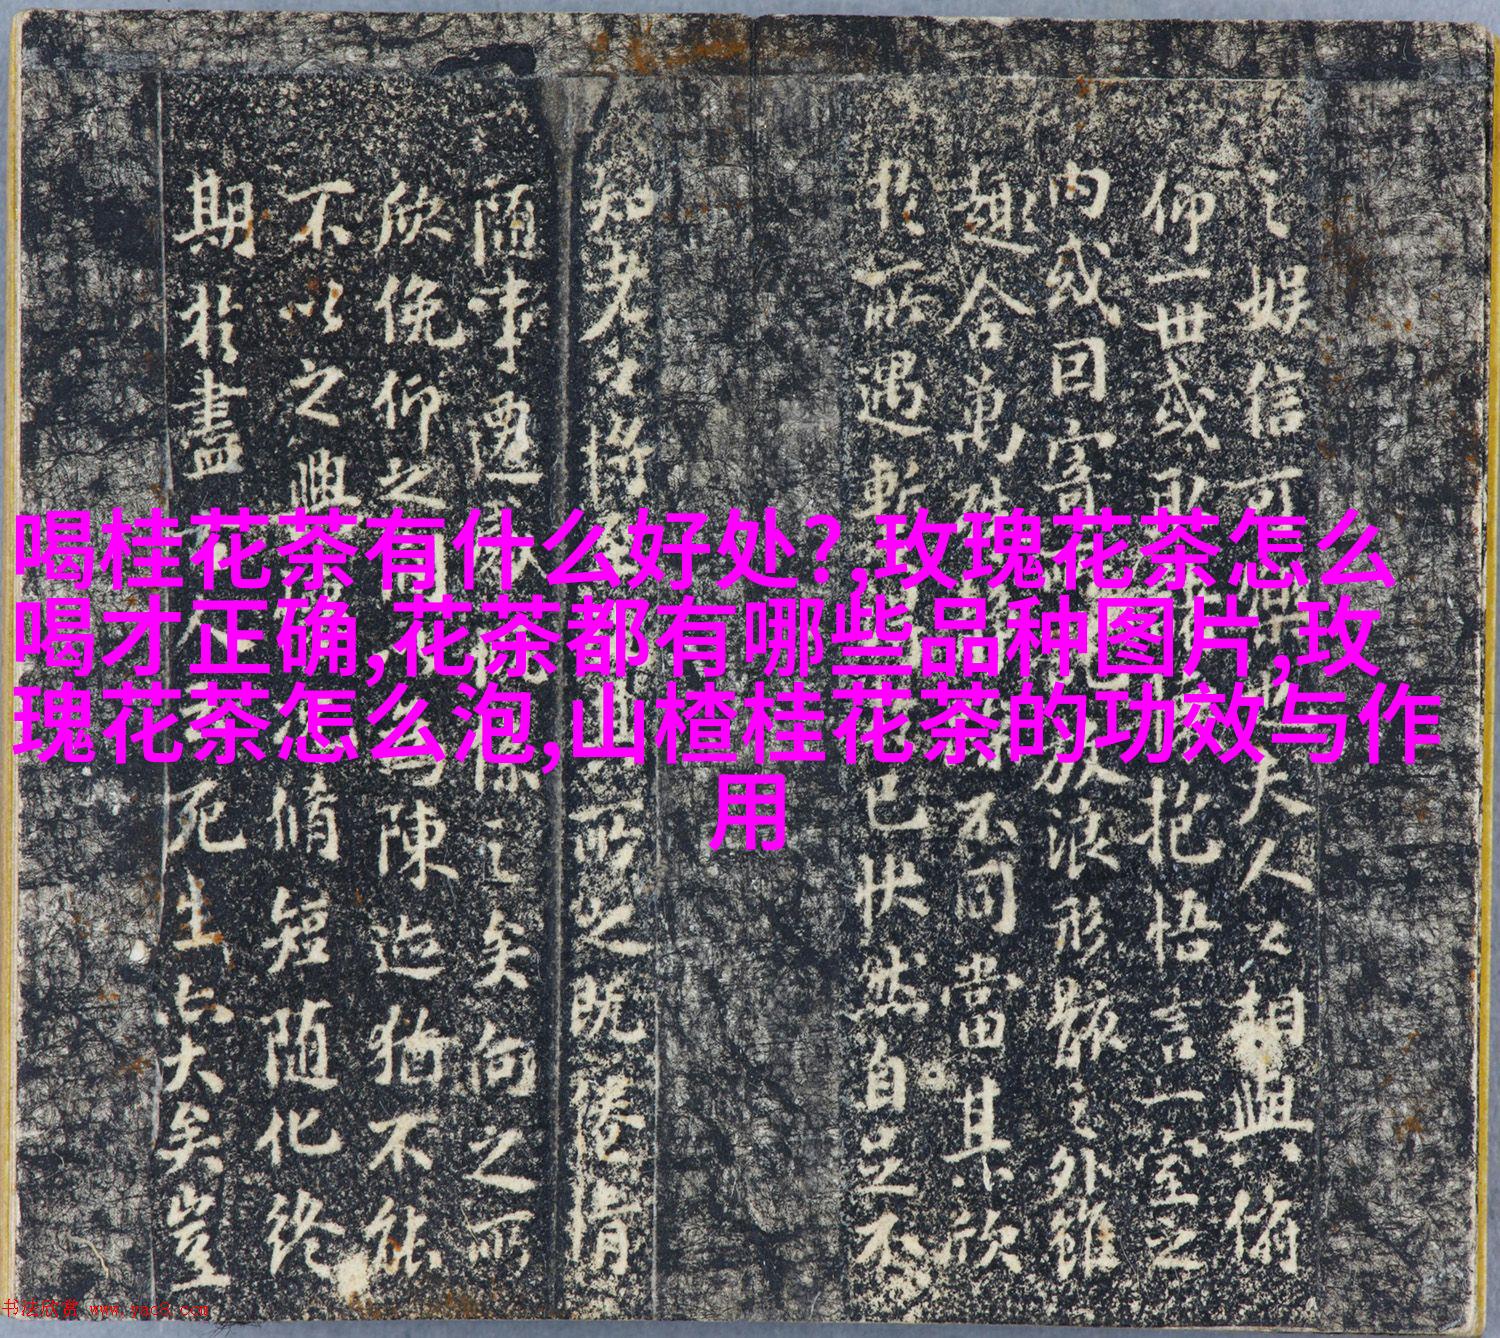 喝桂花茶有什么好处?,玫瑰花茶怎么
喝才正确,花茶都有哪些品种图片,玫
瑰花茶怎么泡,山楂桂花茶的功效与作
用
之娛信可夫人之相與俯
仰一世或取抱悟言一室之
内或因寄放浪形骸之外雖
趣舍萬殊不同當其欣
於所遇暫己快然自足不
知老之將所之既惓情
隨事遷之矣向之所
欣俛仰之為陳迹猶不能
不以之興脩短隨化終
期於盡死生亦大矣豈
书法欣赏 www.yac8.com